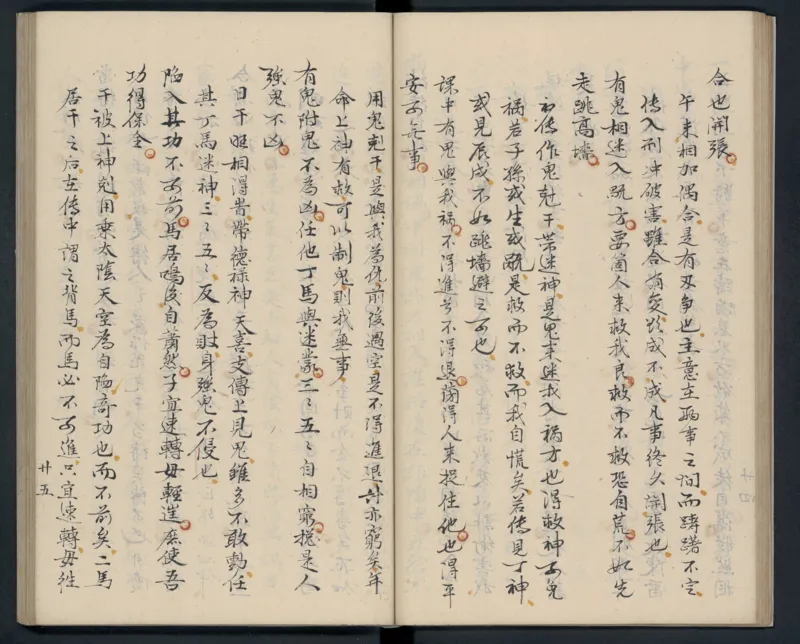 合也開張
午未相加偶合是有刃爭也主意在兩事之間而躊躇不定
傳入刑冲破害雖合有変欲成不成凡事终久開張也
有鬼相迷入既方要箇人来救我良救而不救恐自荒不如先
走跳高墻
初傳作鬼尅干帶迷神是鬼来迷我入禍方也得救神可免
禍若子孫或生或既是救而不救而我自慌矣若傳見丁神
或見辰戌不如跳墻避之可也
課中有鬼與我禍不得進兮不得退藹得人来捉住他也得平
安可無事
用鬼尅干是與我為仇前後遇空是不得進退兮亦窮矣年
命上神有救可以制鬼則我無事
有鬼附鬼不為凶任他丁馬與迷蒙三〻五〻自相窮攪是人
強鬼不凶
今日干旺相得嵜帶德禄神天喜支傳上見鬼雖多不敢動任
其丁馬迷神三〻五〻反為財身強鬼不侵也
陷入其功不可前馬居鳴後自蕭然子宜速轉毋輕進庶使吾
功得保全
干被上神尅用乘太陰天空為自陷奇功也而不前矣二馬
居干之后在傳中謂之背馬而馬必不可進只宜速轉毋徃
廿五